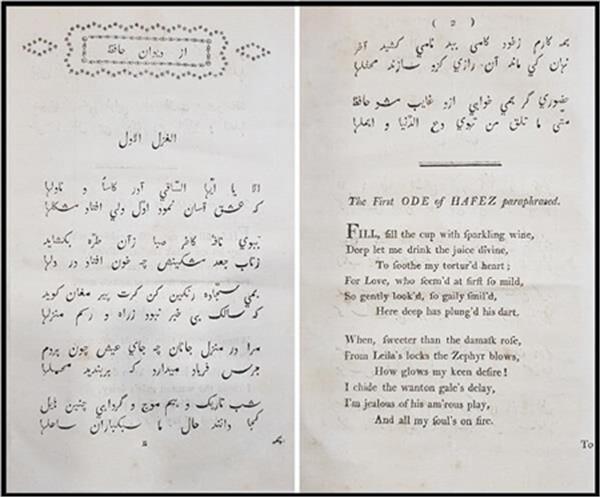 از ديوان حافظ
الغزل الاول
الا يا ايها الساقي آدر کاساً و ناولها
که عشق آسان نمود اول ولي افتاد مشکلها
ببوي نافه کاخر صبا زان طره بکشايد
زتاب جعد مشکينش چه خون افتاد در دلها
بمي سجاده رنکين کن کرت پير مغان کويد
که سالک بي خبر نبود زراه و رسم منزلها
مرا در منزل جانان چه جاي عيش چون هردم
جرس فرياد ميدارد که بربنديد محملها
شب تاريک و بيم موج و گردابي چنين هايل
کجا دانند حال ما سبکباران ساحلها
همه
( 2 )
همه کارم زخود کامي ببد نامي کشيد آخر
نهان کي ماند آن رازي کزو سازند محفلها
حضوري گر همي خواهي ازو غايب مشو حافظ
متي ما تلق من تهوي دع الدنيا و اهملها
The First ODE of HAFEZ paraphrased.
FILL, fill the cup with ſparkling wine,
Deep let me drink the juice divine,
To ſoothe my tortur'd heart;
For Love, who ſeem'd at firſt ſo mild,
So gently look'd, ſo gaily ſmil'd,
Here deep has plung'd his dart.
When, ſweeter than the damaſk roſe,
From Leila's locks the Zephyr blows,
How glows my keen deſire!
I chide the wanton gale's delay,
I'm jealous of his am'rous play,
And all my ſoul's on fire.
To